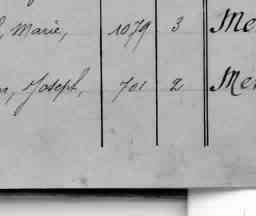 Marie, 1079 3 Me
Joseph, 701 2 Me